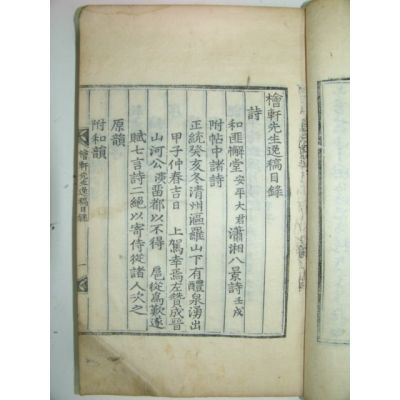 檜軒先生逸稿目錄
詩
和匪懈堂安平大君瀟湘八景詩壬戌
附帖中諸詩
正統癸亥冬清州漚羅山下有醴泉湧出
甲子仲春吉日 上駕幸焉左贊成晉
山河公演留都以不得 扈從爲歎遂
賦七言詩二絕以寄侍從諸人次之
原韻
附和韻
檜軒先生逸稿目錄
一